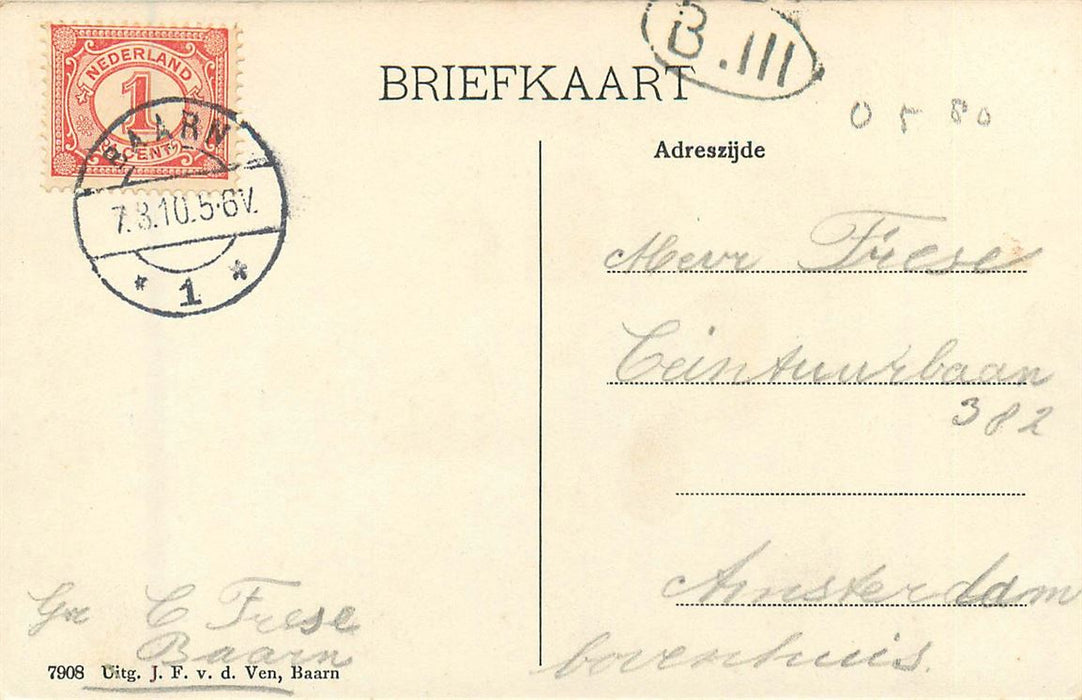 NEDERLAND
1
CENT
BAARN
7.3.10.5-6V.
* 1 *
B.III
BRIEFKAART
Adreszijde
Mevr Frese
Ceintuurbaan
382
Amsterdam
bovenhuis.
Gr C Frese
Baarn
7908 Uitg. J. F. v. d. Ven, Baarn